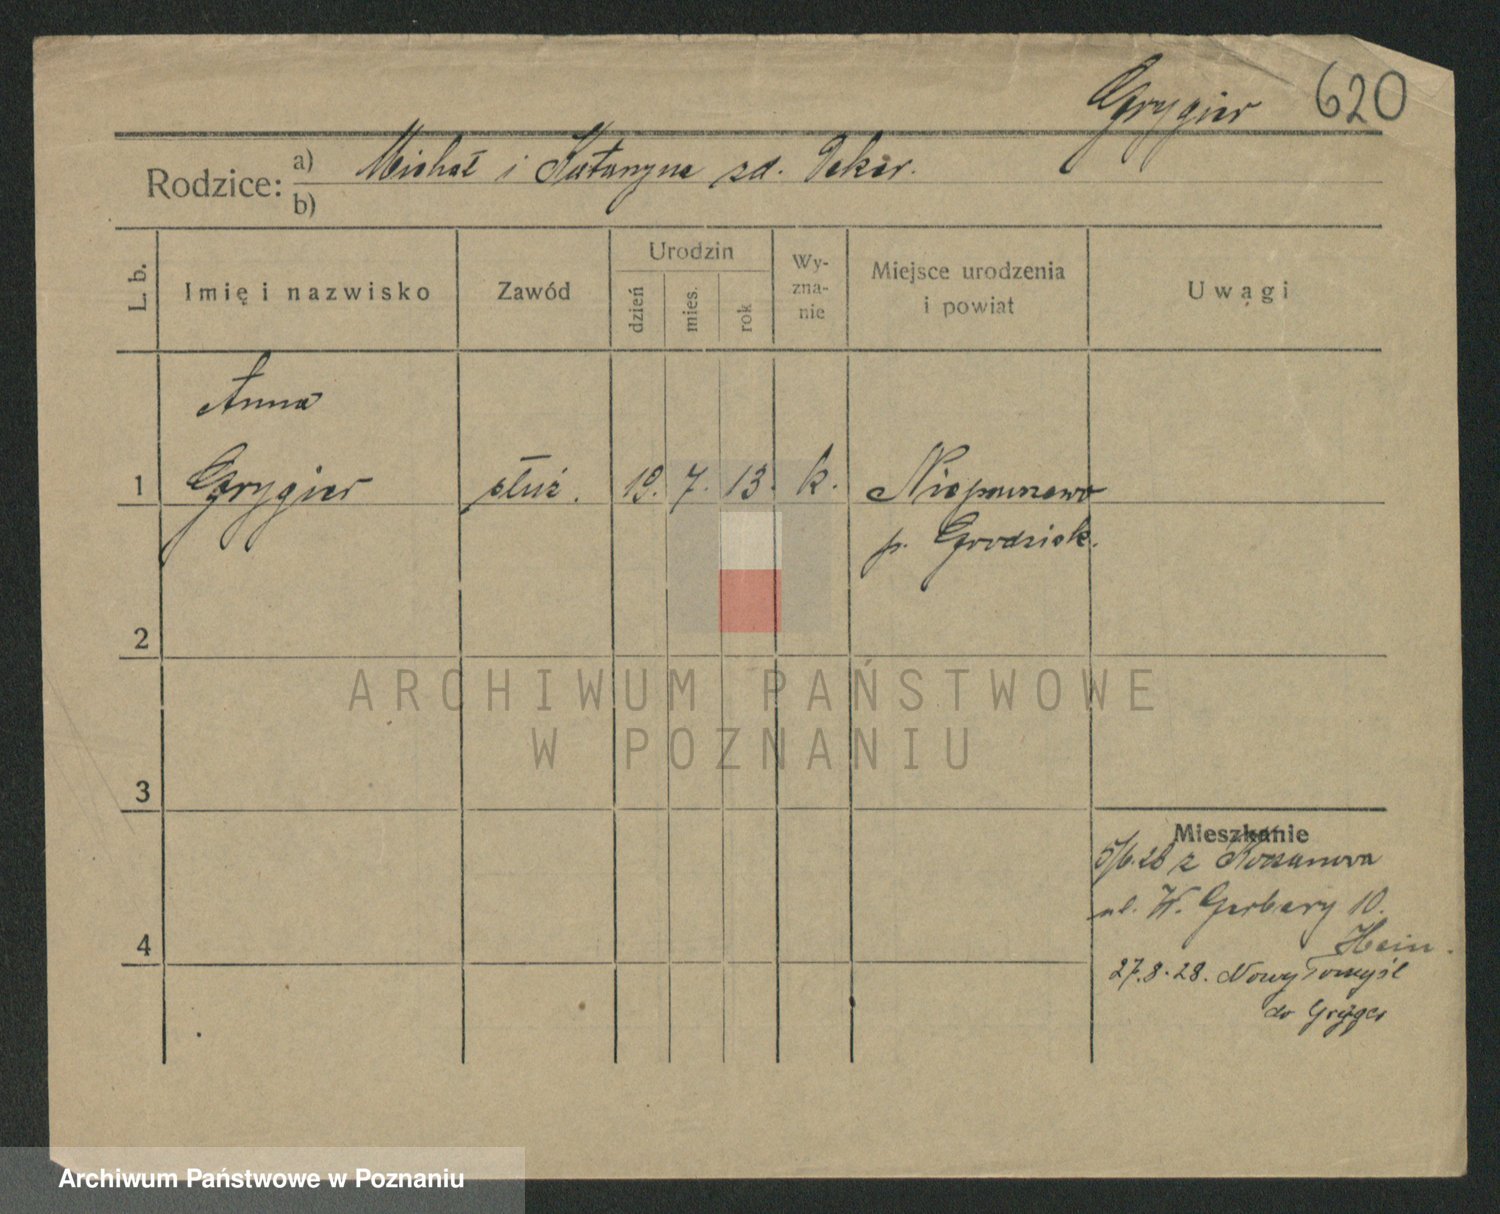 Grygier 620
Rodzice: a) Michał i Katarzyna zd. Pekár.
b)
L. b.
Imię i nazwisko
Zawód
Urodzin
dzień
mies.
rok
Wy-
zna-
nie
Miejsce urodzenia
i powiat
Uwagi
Anna
1 Grygier służ. 19. 7. 13. k. Niepruszewo
p. Grodzisk.
2
ARCHIWUM PAŃSTWOWE
W POZNANIU
3
Mieszkanie
5/6.28 z
ul. W. Garbary 10.
4
Hein.
27.8.28. Nowy Tomyśl
do Gryger
Archiwum Państwowe w Poznaniu